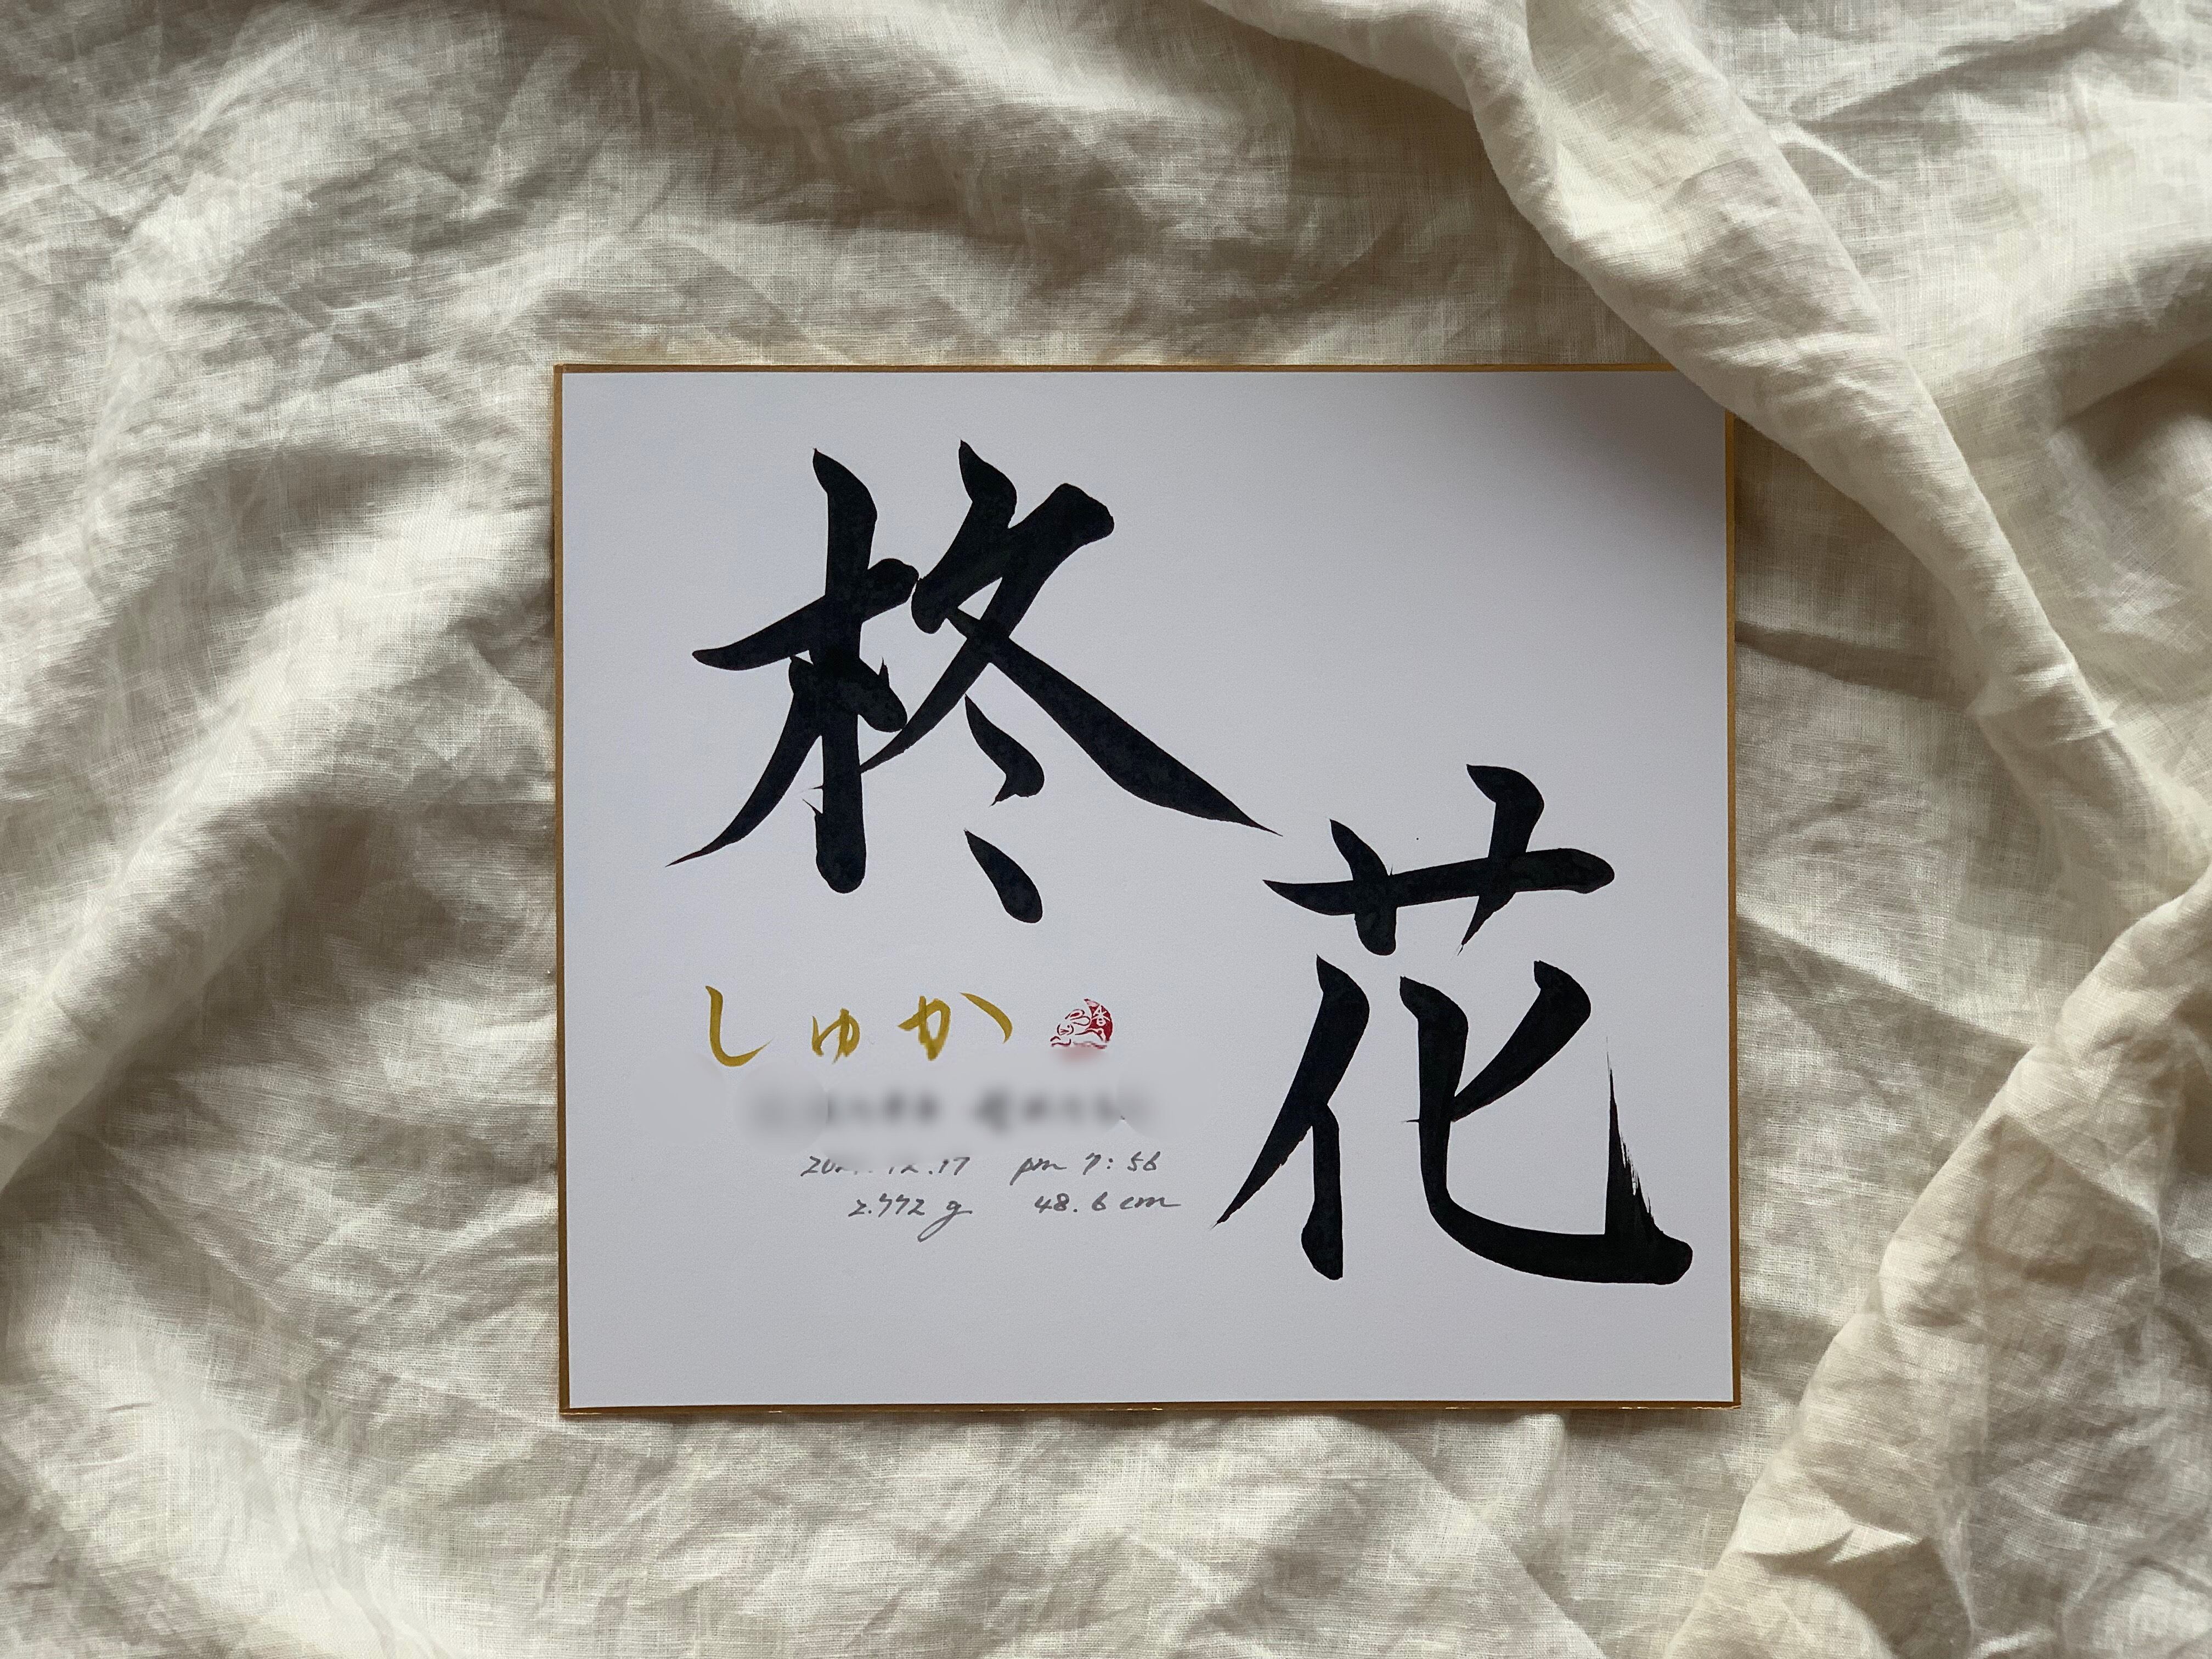 柊花
しゅか
12.17 pm 7:56
2.772g 48.6cm